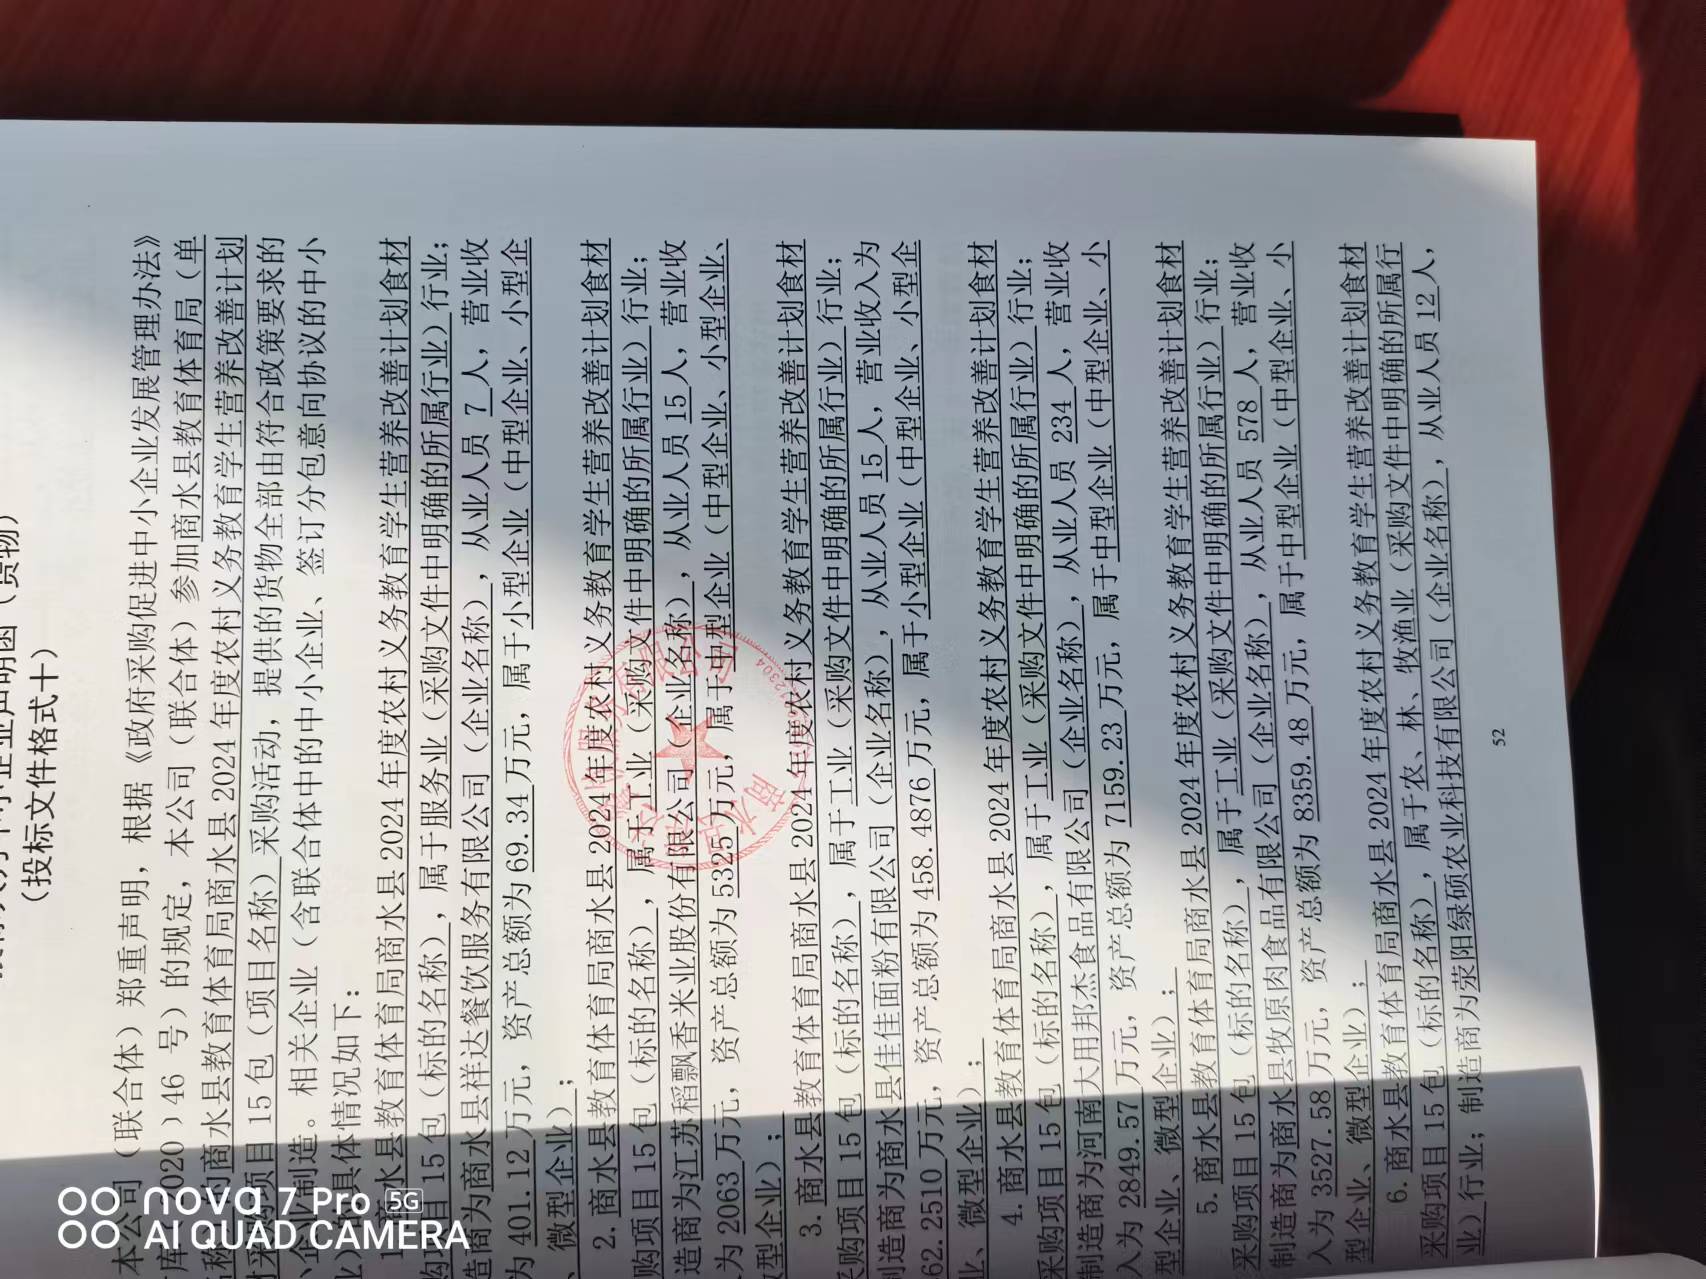 (投标文件格式十)
本公司(联合体)郑重声明,根据《政府采购促进中小企业发展管理办法》
2020)46 号)的规定,本公司(联合体)参加商水县教育体育局(单
商水县教育体育局商水县 2024 年度农村义务教育学生营养改善计划
采购项目 15 包(项目名称)采购活动,提供的货物全部由符合政策要求的
企业制造。相关企业(含联合体中的中小企业、签订分包意向协议的中小
具体情况如下:
商水县教育体育局商水县 2024 年度农村义务教育学生营养改善计划食材
目 15 包(标的名称),属于服务业(采购文件中明确的所属行业)行业;
造商为商水县祥达餐饮服务有限公司(企业名称),从业人员 7 人,营业收
为 401.12 万元,资产总额为 69.34 万元,属于小型企业(中型企业、小型企
、微型企业);
2. 商水县教育体育局商水县 2024 年度农村义务教育学生营养改善计划食材
购项目 15 包(标的名称),属于工业(采购文件中明确的所属行业)行业;
造商为江苏稻飘香米业股份有限公司(企业名称),从业人员 15 人,营业收
为 2063 万元,资产总额为 5325 万元,属于中型企业(中型企业、小型企业、
微型企业);
3. 商水县教育体育局商水县 2024 年度农村义务教育学生营养改善计划食材
采购项目 15 包(标的名称),属于工业(采购文件中明确的所属行业)行业;
制造商为商水县佳佳面粉有限公司(企业名称),从业人员 15 人,营业收入为
62.2510 万元,资产总额为 458.4876 万元,属于小型企业(中型企业、小型企
业、微型企业);
4. 商水县教育体育局商水县 2024 年度农村义务教育学生营养改善计划食材
采购项目 15 包(标的名称),属于工业(采购文件中明确的所属行业)行业;
制造商为河南大用邦杰食品有限公司(企业名称),从业人员 234 人,营业收
入为 2849.57 万元,资产总额为 7159.23 万元,属于中型企业(中型企业、小
型企业、微型企业);
5. 商水县教育体育局商水县 2024 年度农村义务教育学生营养改善计划食材
采购项目 15 包(标的名称),属于工业(采购文件中明确的所属行业)行业;
制造商为商水县牧原肉食品有限公司(企业名称),从业人员 578 人,营业收
入为 3527.58 万元,资产总额为 8359.48 万元,属于中型企业(中型企业、小
型企业、微型企业);
6. 商水县教育体育局商水县 2024 年度农村义务教育学生营养改善计划食材
采购项目 15 包(标的名称),属于农、林、牧渔业(采购文件中明确的所属行
业)行业;制造商为荥阳绿硕农业科技有限公司(企业名称),从业人员 12 人,
52
nova 7 Pro 5G
AI QUAD CAMERA